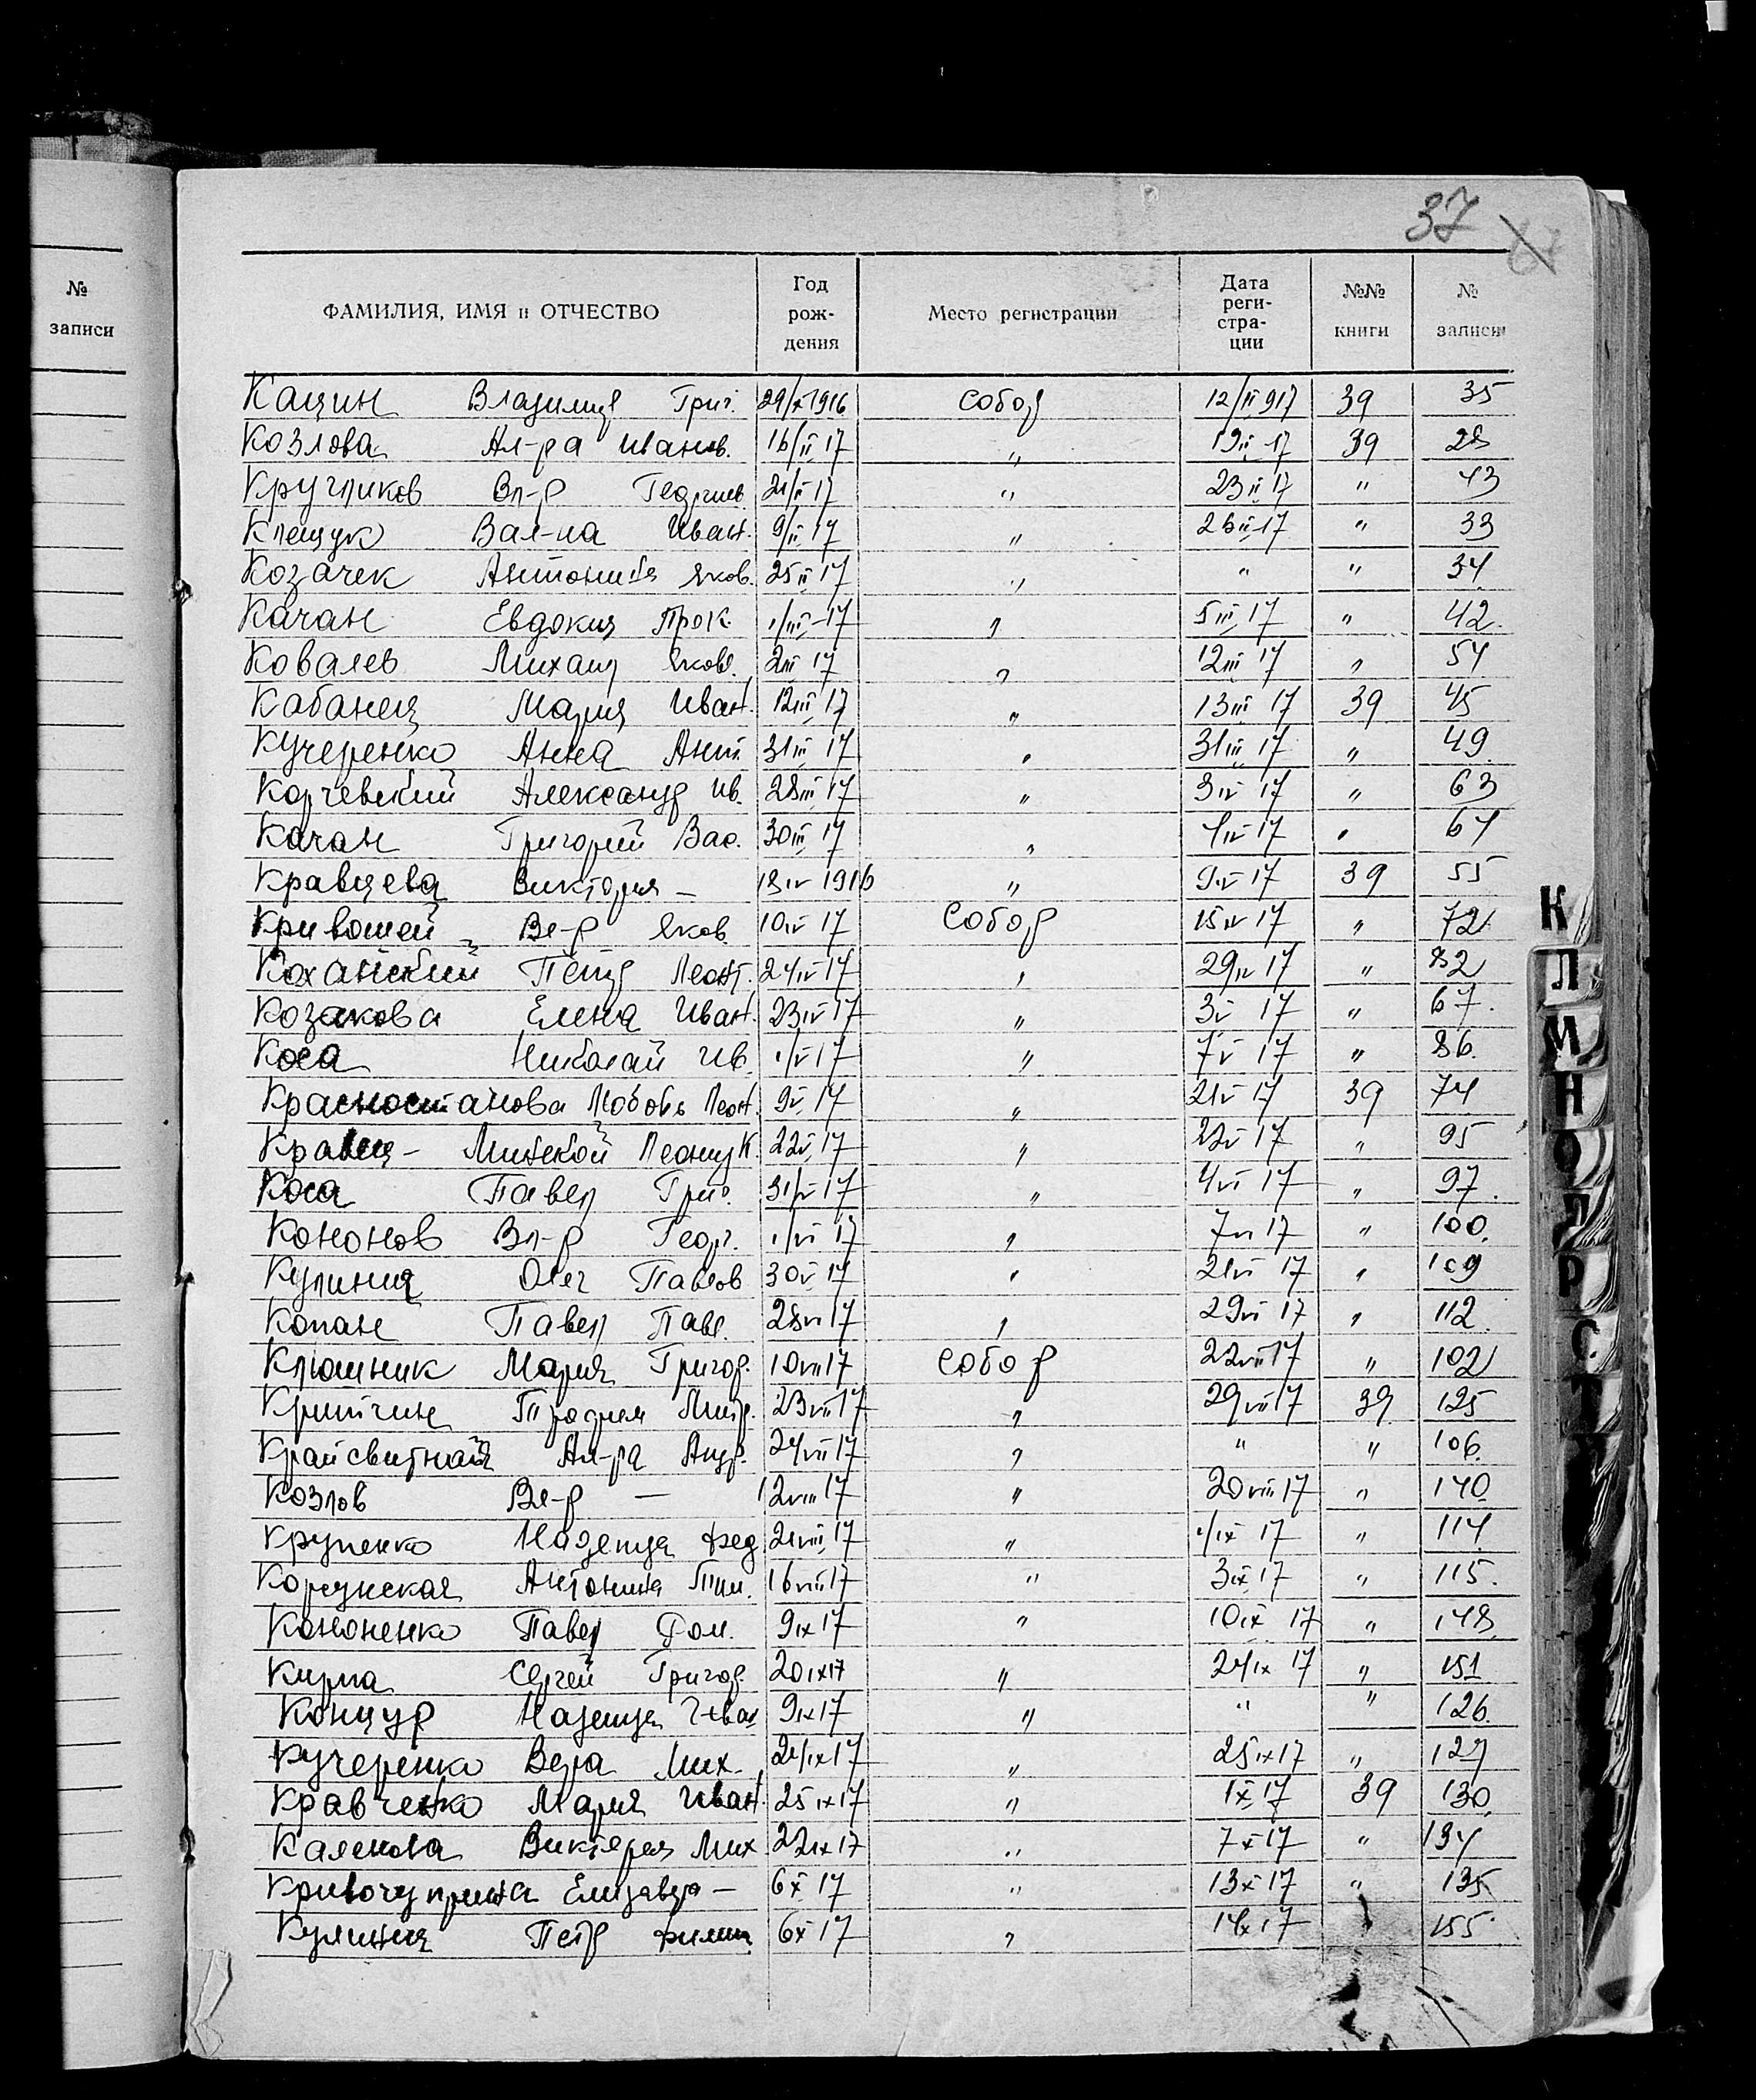 37
№
записи
ФАМИЛИЯ, ИМЯ и ОТЧЕСТВО Год рождения Место регистрации Дата регистрации №№ книги № записи
Кацин Владимир Григ. 29/X 1916 Собор 12/II 917 39 35
Козлова Ал-ра Иванов. 16/II 17 " 19 II 17 39 28
Кругликов Вл-р Георгиев 21/II 17 " 23 II 17 " 43
Клещук Вал-на Иван. 9/II 17 " 26 II 17 " 33
Козачек Антонина Яков. 25 II 17 " " " 34
Качан Евдокия Прок. 1/III-17 " 5 III 17 " 42.
Ковалев Михаил Яковл. 2 III 17 " 12 III 17 " 54
Кабанец Мария Иван. 12 III 17 " 13 III 17 39 45
Кучеренко Анна Ант. 31 III 17 " 31 III 17 " 49.
Корчевский Александр Ив. 28 III 17 " 3 IV 17 " 63
Качан Григорий Вас. 30 III 17 " 4 IV 17 " 64
Кравцева Виктория - 18 IV 1916 " 9 IV 17 39 55
Кривошей Вл-р Яков. 10 IV 17 Собор 15 IV 17 " 72
Коханский Петр Леонт. 24 IV 17 " 29 IV 17 " 82
Козакова Елена Иван. 23 IV 17 " 3 V 17 " 67.
Коса Николай Ив. 1/V 17 " 7 V 17 " 86.
Красноштанова Любовь Леон. 9 V 17 " 21 V 17 39 74
Кравец - Минской Леонид К. 22 V 17 " 22 V 17 " 95
Коса Павел Григ. 31/V 17 " 4 VI 17 " 97.
Кононов Вл-р Георг. 1/VI 17 " 7 VI 17 " 100.
Кулиниц Олег Павлов 30 V 17 " 21 VI 17 " 109
Копан Павел Павл. 28 VI 17 " 29 VI 17 " 112.
Ключник Мария Григор. 10 VII 17 Собор 22 VII 17 " 102
Трофим Митр. 23 VII 17 " 29 VII 17 39 125
Ал-ра Андр. 24 VII 17 " " " 106.
Козлов Вл-р — 12 VIII 17 " 20 VIII 17 " 140
Крупенко Надежда Фед. 21 VIII 17 " 1/IX 17 " 114
Корсунская Антонина Тим. 16 VIII 17 " 3 IX 17 " 115.
Кононенко Павел Дом. 9 IX 17 " 10 IX 17 " 148
Кирпа Сергей Григор. 20 IX 17 " 24 IX 17 " 151
Концур Надежда Иван 9 IX 17 " " " 126.
Кучеренко Вера Мих. 24 IX 17 " 25 IX 17 " 127
Кравченко Мария Иван. 25 IX 17 " 1 X 17 39 130
Каленова Виктория Мих 22 IX 17 " 7 X 17 " 134
Кривочуприна Елизавета - 6 X 17 " 13 X 17 " 135
Кулиниц Петр Филип 6 X 17 " 14 X 17 " 155.
К
Л
М
Н
О
П
Р
С
Т